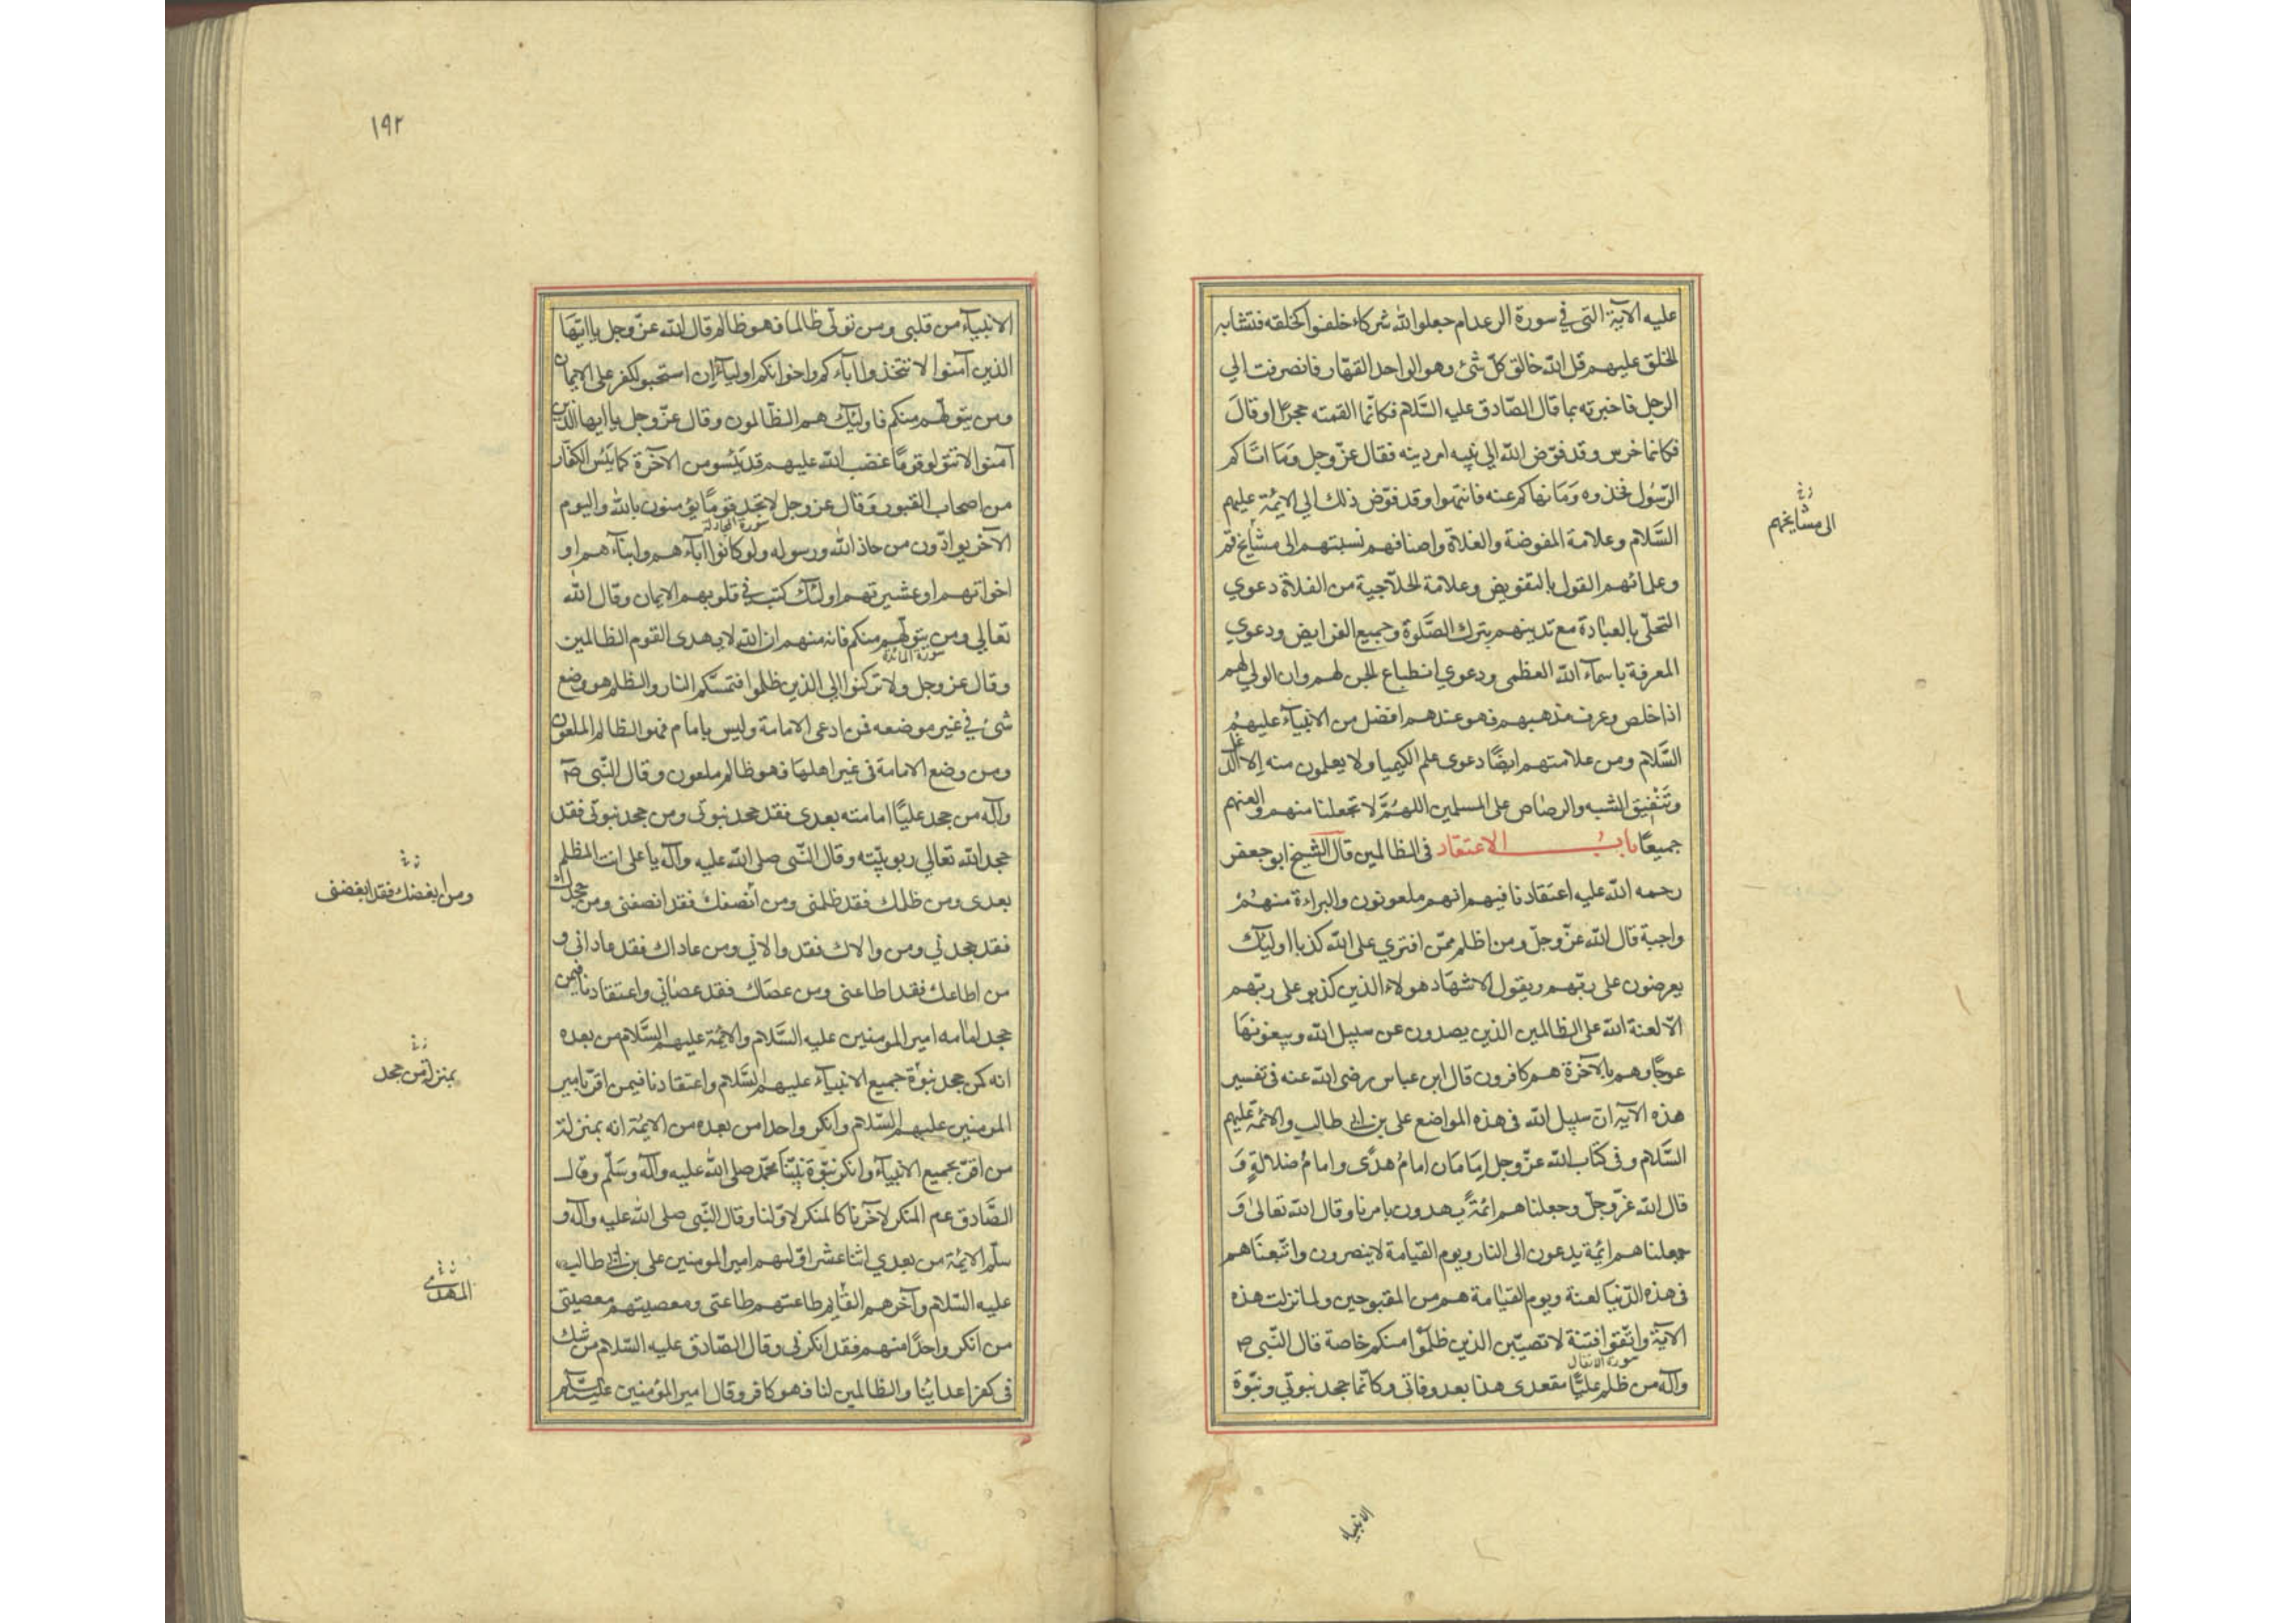 عليه الآية التي في سورة الرعد ام جعلوا لله شركاء خلقوا كخلقه فتشابه
الخلق عليهم قل الله خالق كلّ شئ وهو الواحد القهّار فانصرفت الي
الرجل فاخبرته بما قال الصّادق عليه السَّلام فكانّما القمته حجرًا او قال
فكانما خرس وقد فوّض الله الي نبيه امر دينه فقال عزّ وجل وَمَا اتَاكم
الرّسُول فخذوه وَمَا نهاكم عنه فانتهوا وقد فوّض ذلك الي الايمُة عليهم
السَّلام وعلامة المفوضة والغلاة واصنافهم نسبتهم الى مشايخ قم
وعلمائهم القول بالتفويض وعلامة الحلاّجية من الغلاة دعوي
التحلّي بالعبادة مع تدينهم بترك الصَّلوة وجميع الفرايض ودعوي
المعرفة باسمآء الله العظمى ودعوي انطباع الجن لهم وان الولي لهم
اذا خلص وعرف مذهبهم فهو عندهم افضل من الانبيآء عليهم
السَّلام ومن علامتهم ايضًا دعوى علم الكيميا ولا يعلمون منه إلا الدغل
وتَنْفيق الشبه والرصاص على المسلمين اللهُمَّ لا تجعلنا منهم والعنهم
جميعًا بابُ الاعتقاد فى الظالمين قال الشيخ ابو جعفر
رحمه الله عليه اعتقادنا فيهم انهم ملعونون والبراءة منهُمْ
واجبة قال الله عزّ وجلّ ومن اظلم ممّن افتري على الله كذبا اوليَٓك
يعرضون على ربّهم ويقول الاشهاد هولاء الذين كذبو على ربّهم
الاّ لعنة الله على الظالمين الذين يصدون عن سبيل الله ويبغونهَا
عوجًا وهم بالآخرة هم كافرون قال ابن عباس رضى الله عنه فى تفسير
هذه الآية ان سبيل الله فى هذه المواضع على بن ابي طالب والائمّة عليهم
السَّلام وفى كتَاب الله عزّ وجل اِمَامَان امامُ هدًى وامامُ ضلالةٍ وَ
قال الله عزّ وجلّ وجعلناهم ائمُةً يهدون بامرنا وقال الله تعالى وَ
جعلناهم ائمة يدعون الى النار ويوم القيامة لا ينصرون واتبعنَاهم
فى هذه الدّنيا لعنة ويوم القيامة هم من المقبوحين ولما نزلت هذه
الآية واتّقوا فتنة لا تصيبّن الذين ظلموا منكم خاصة قال النّبى ص
سورة الانفال
وآله من ظلم عليًّا مقعدى هذا بعد وفاتى وكانّما جحد نبوتي ونبوّة
الى مشايخهم
الانبياء
١٩٢
الانبيآء من قلبى ومن تولّى ظالما فهو ظالم قال الله عزّ وجل ياايّهَا
الذين آمنوا لا تتخذوا اباءكم واخوانكم اوليآء ان استحبو الكفر على الايمان
ومن يتولّهم منكم فاوليَٓك هم الظّالمون وقال عزّ وجل يا ايها الذين
آمنوا لا تتولو قومًا غضب الله عليهم قد يَئسو من الآخرة كما يَئس الكفّار
من اصحاب القبور وَقال عز وجل لا تجد قومًا يؤمنون بالله واليوم
سورة المجادلة
الآخر يوادّون من حاذ الله ورسوله ولو كانوا اباءهم وابناءهم او
اخواتهم او عشيرتهم اولئك كتب في قلوبهم الايمان وقال الله
تعالي ومن يتولّهم منكم فانه منهم ان الله لا يهدى القوم الظالمين
سورة المائدة
وقال عز وجل ولا تركنوا الي الذين ظلموا فتمسَّكم النار والظلم هو وضع
شئ في غير موضعه فمن ادعى الامامة وليس بامام فهو الظالم الملعون
ومن وضع الامامة فى غير اهلها فهو ظالم ملعون وقال النّبى ص
وآله من جحد عليًّا امامته بعدى فقد جحد نبوتى ومن جحد نبوتى فقد
جحد الله تعالي ربوبيّته وقال النّبى صلى الله عليه وآله يا على انت المظلم
بعدى ومن ظلمك فقد ظلمنى ومن أنصفك فقد انصفنى ومن جحدك
فقد جحدني ومن والاك فقد والاني ومن عاداك فقد عادانى و
من اطاعك فقد اطاعنى ومن عصاك فقد عصاني واعتقادنا فيمن
جحد امامه امير المومنين عليه السَّلام والائمُة عليهم السَّلام من بعده
انه كمن جحد نبوّة جميع الانبيآء عليهم السَّلام واعتقادنا فيمن اقرّ بامير
المومنين عليهم السّلام وانكر واحدا من بعده من الايمُة انه بمنزلة
من اقرّ بجميع الانبيآء وانكر نبوّة نبيّنا محمّد صلى الله عليه وآله وسَلّم وقال
الصَّادق عم المنكر لآخرنا كالمنكر لاوّلنا وقال النّبى صلى الله عليه وآله و
سلّم الايمُة من بعدي اثنا عشر اوّلهم امير المومنين على بن ابي طالب
عليه السّلام وآخرهم القايم طاعتهم طاعتى ومعصيتهم معصيتى
من انكر واحدًا منهم فقد انكرنى وقال الصّادق عليه السّلام من شك
فى كفر اعدايُنا والظالمين لنا فهو كافر وقال امير المؤمنين عليه السّلام
ومن ابغضك فقد ابغضنى
بمنزلة من جحد
المهدي